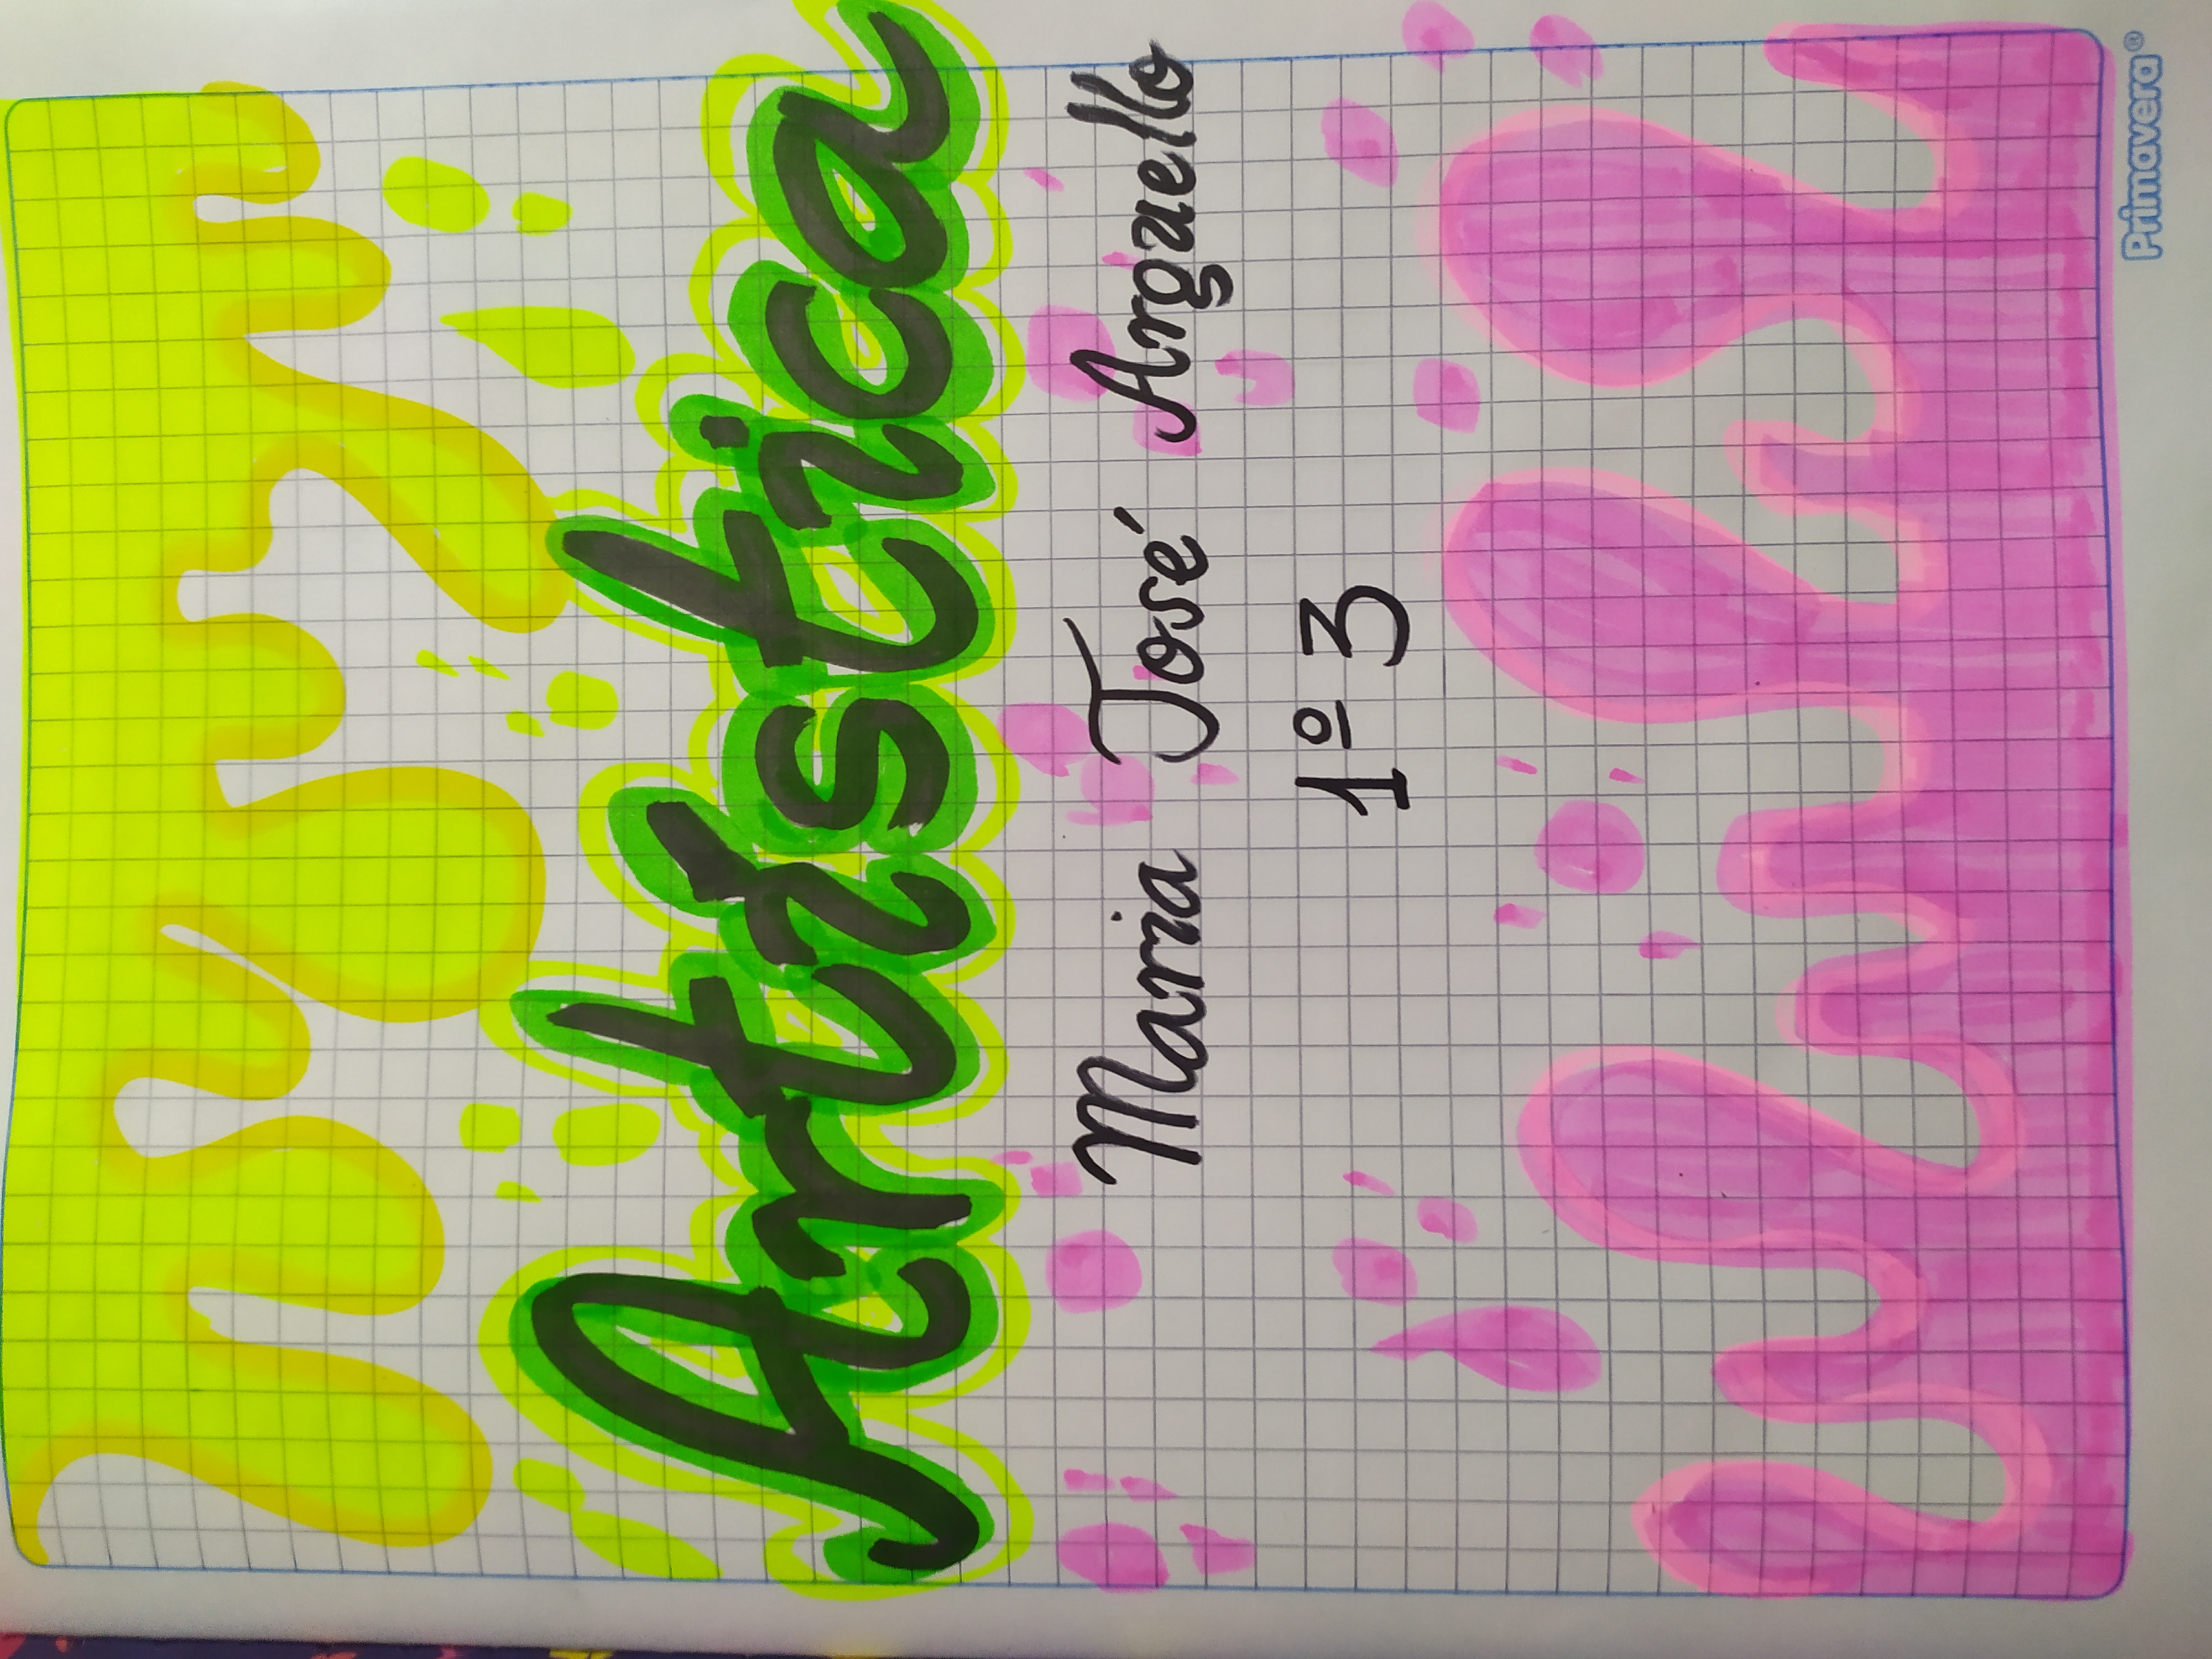 Artística
Maria José Arguello
1º 3
Primavera®